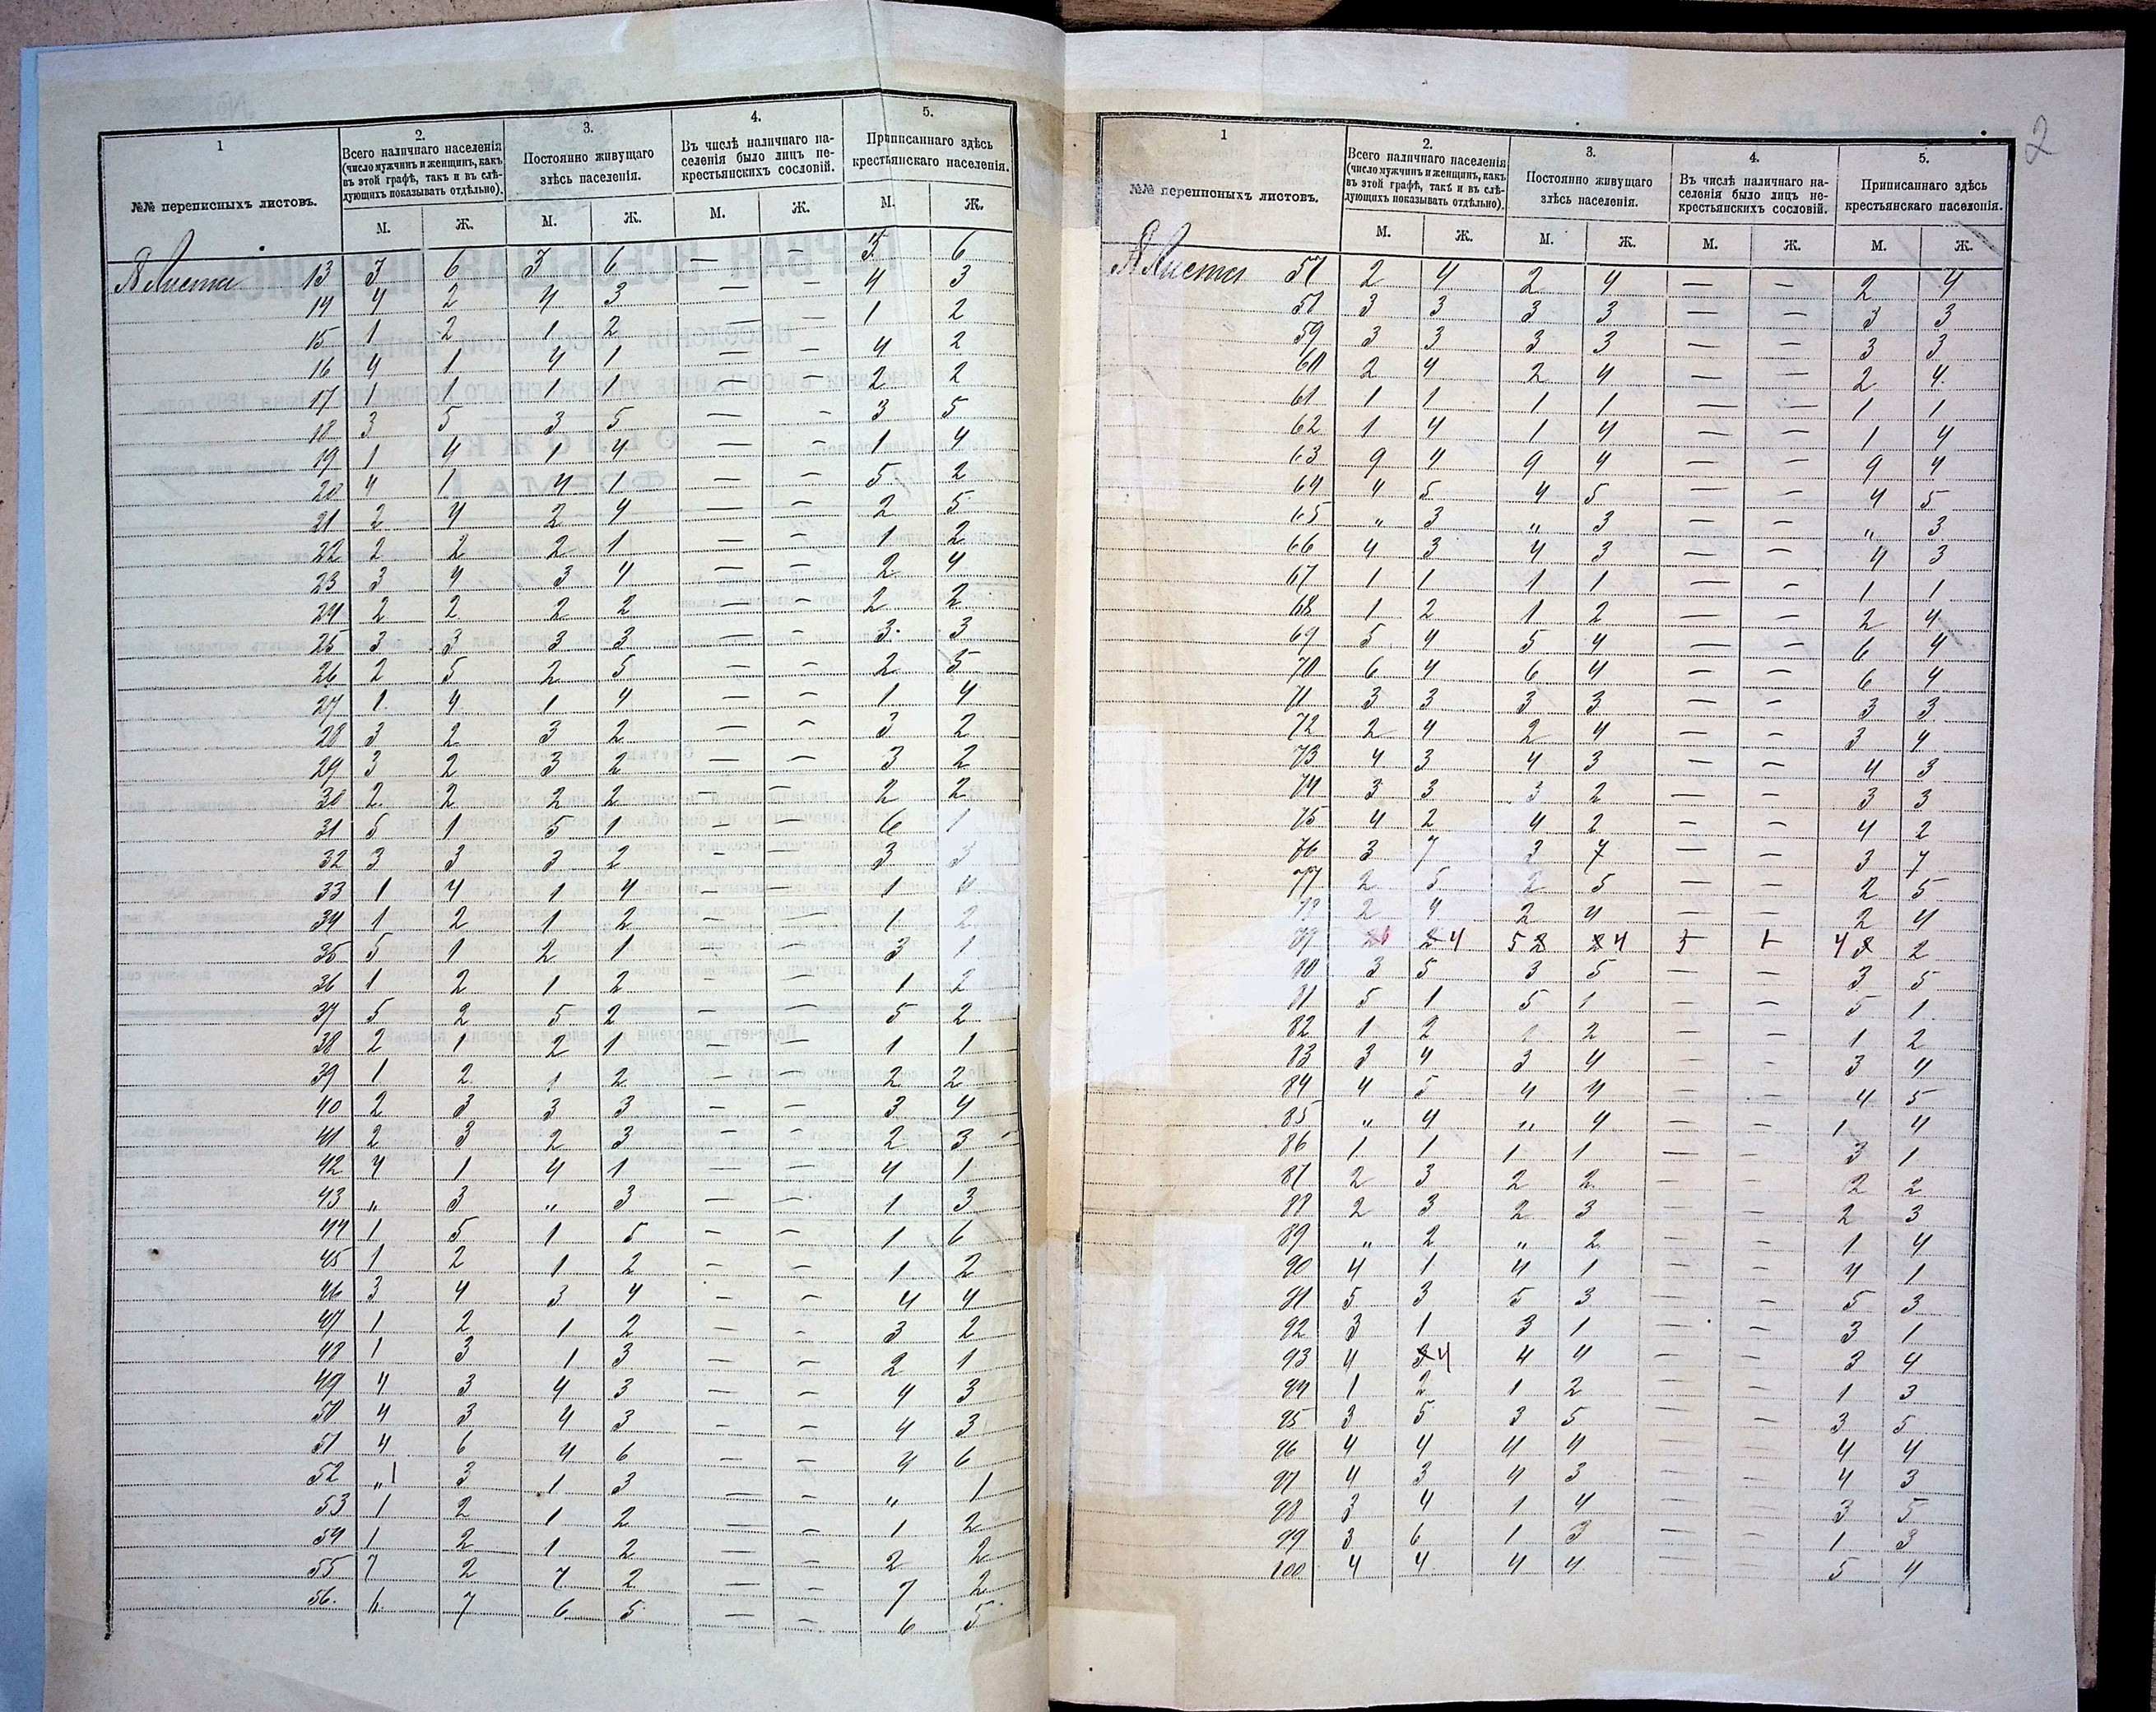 1
2.
3.
4.
5.
№№ переписныхъ листовъ.
Всего наличнаго населенія (число мужчинъ и женщинъ, какъ въ этой графѣ, такъ и въ слѣдующихъ показывать отдѣльно).
Постоянно живущаго здѣсь населенія.
Въ числѣ наличнаго населенія было лицъ некрестьянскихъ сословій.
Приписаннаго здѣсь крестьянскаго населенія.
М. Ж. М. Ж. М. Ж. М. Ж.
А Листа 13 3 6 3 6 — 3 6
14 4 2 4 3 — - 4 3
15 1 2 1 2 — - 1 2
16 4 1 4 1 — - 4 2
17 1 1 1 1 — - 2 2
18 3 5 3 5 — - 3 5
19 1 4 1 4 — - 1 4
20 4 1 4 1 — - 5 2
21 2 4 2 4 — - 2 5
22 2 2 2 1 — - 1 2
23 3 4 3 4 — - 2 4
24 2 2 2 2 — - 2 2
25 3 3 3 3 — - 3 3
26 2 5 2 5 — - 2 5
27 1 4 1 4 — - 1 4
28 3 2 3 2 — - 3 2
29 3 2 3 2 — - 3 2
30 2 2 2 2 — - 2 2
31 5 1 5 1 — - 6 1
32 3 3 3 2 - - 3 3
33 1 4 1 4 - - 1 4
34 1 2 1 2 - - 1 2
35 5 1 2 1 - - 3 1
36 1 2 1 2 - - 1 2
37 5 2 5 2 - - 5 2
38 2 1 2 1 - - 1 1
39 1 2 1 2 - - 2 2
40 2 3 3 3 - - 3 4
41 2 3 2 3 - - 2 3
42 4 1 4 1 - - 4 1
43 „ 3 „ 3 - - 1 3
44 1 5 1 5 - - 1 6
45 1 2 1 2 - - 1 2
46 3 4 3 4 - - 4 4
47 1 2 1 2 - - 3 2
48 1 3 1 3 - - 2 1
49 4 3 4 3 - - 4 3
50 4 3 4 3 - - 4 3
51 4 6 4 6 - - 4 6
52 „ 1 3 1 3 - - „ 1
53 1 2 1 2 - - 1 2
54 1 2 1 2 - - 2 2
55 7 2 7 2 - - 7 2
56. 6 7 6 5 - - 6 5
2
1
2.
3.
4.
5.
№№ переписныхъ листовъ.
Всего наличнаго населенія (число мужчинъ и женщинъ, какъ въ этой графѣ, такъ и въ слѣдующихъ показывать отдѣльно).
Постоянно живущаго здѣсь населенія.
Въ числѣ наличнаго населенія было лицъ некрестьянскихъ сословій.
Приписаннаго здѣсь крестьянскаго населенія.
М. Ж. М. Ж. М. Ж. М. Ж.
А Листа 57 2 4 2 4 — - 2 4
58 3 3 3 3 — - 3 3
59 3 3 3 3 — - 3 3
60 2 4 2 4 — - 2 4
61 1 1 1 1 — - 1 1
62 1 4 1 4 — - 1 4
63 9 4 9 4 — - 9 4
64 4 5 4 5 — - 4 5
65 „ 3 „ 3 — - „ 3
66 4 3 4 3 — - 4 3
67 1 1 1 1 — - 1 1
68 1 2 1 2 — - 2 4
69 5 4 5 4 — - 6 4
70 6 4 6 4 — - 6 4
71 3 3 3 3 — - 3 3
72 2 4 2 4 — - 3 4
73 4 3 4 3 — - 4 3
74 3 3 3 2 — - 3 3
75 4 2 4 2 — - 4 2
76 3 7 3 7 — - 3 7
77 2 5 2 5 — - 2 5
78 2 4 2 4 — - 2 4
79 2 6 2 4 5 2 2 4 3 1 4 3 2
80 3 5 3 5 - - 3 5
81 5 1 5 1 - - 5 1
82 1 2 1 2 - - 1 2
83 3 4 3 4 - - 3 4
84 4 5 4 4 - - 4 5
85 „ 4 „ 4 - - 1 4
86 1 1 1 1 - - 3 1
87 2 3 2 2 - - 2 2
88 2 3 2 3 - - 2 3
89 „ 2 „ 2 - - 1 4
90 4 1 4 1 - - 4 1
91 5 3 5 3 - - 5 3
92 3 1 3 1 - - 3 1
93 4 3 4 4 4 - - 3 4
94 1 2 1 2 - - 1 3
95 3 5 3 5 - - 3 5
96 4 4 4 4 - - 4 4
97 4 3 4 3 - - 4 3
98 3 4 1 4 - - 3 5
99 3 6 1 3 - - 1 3
100 4 4 4 4 - - 5 4